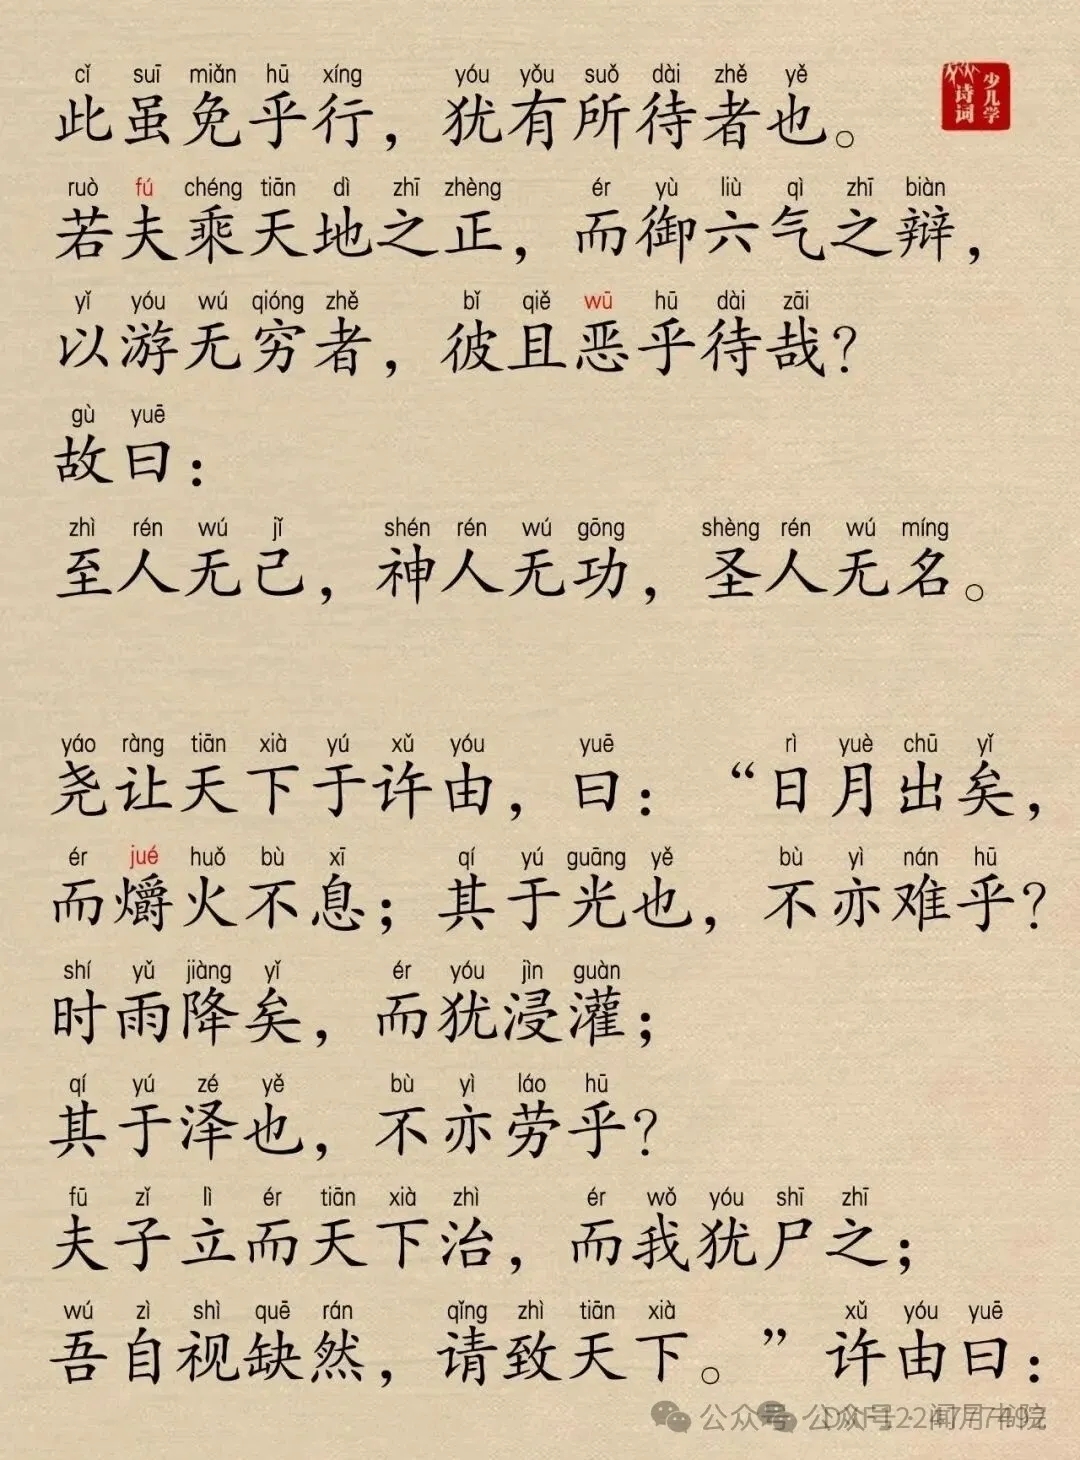 cǐ suī miǎn hū xíng yóu yǒu suǒ dài zhě yě
此虽免乎行，犹有所待者也。
少儿学
诗词
ruò fú chéng tiān dì zhī zhèng ér yù liù qì zhī biàn
若夫乘天地之正，而御六气之辩，
yǐ yóu wú qióng zhě bǐ qiě wū hū dài zāi
以游无穷者，彼且恶乎待哉？
gù yuē
故曰：
zhì rén wú jǐ shén rén wú gōng shèng rén wú míng
至人无己，神人无功，圣人无名。
yáo ràng tiān xià yú xǔ yóu yuē rì yuè chū yǐ
尧让天下于许由，曰：“日月出矣，
ér jué huǒ bù xī qí yú guāng yě bù yì nán hū
而爝火不息；其于光也，不亦难乎？
shí yǔ jiàng yǐ ér yóu jìn guàn
时雨降矣，而犹浸灌；
qí yú zé yě bù yì láo hū
其于泽也，不亦劳乎？
fū zǐ lì ér tiān xià zhì ér wǒ yóu shī zhī
夫子立而天下治，而我犹尸之；
wú zì shì quē rán qǐng zhì tiān xià xǔ yóu yuē
吾自视缺然，请致天下。”许由曰：
公众号 公众号·闻月书院